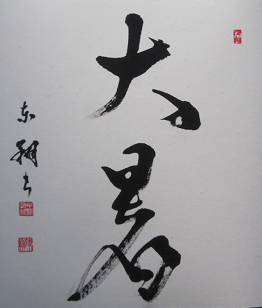 大暑
东翔书